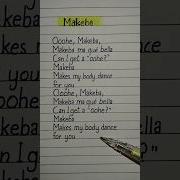 Makeba
Ooohe, Makeba,
Makeba ma qué bella
Can I get a "oohe?"
Makeba
Makes my body dance
for you
Ooohe, Makeba,
Makeba ma qué bella
Can I get a "oohe?"
Makeba
Makes my body dance
for you